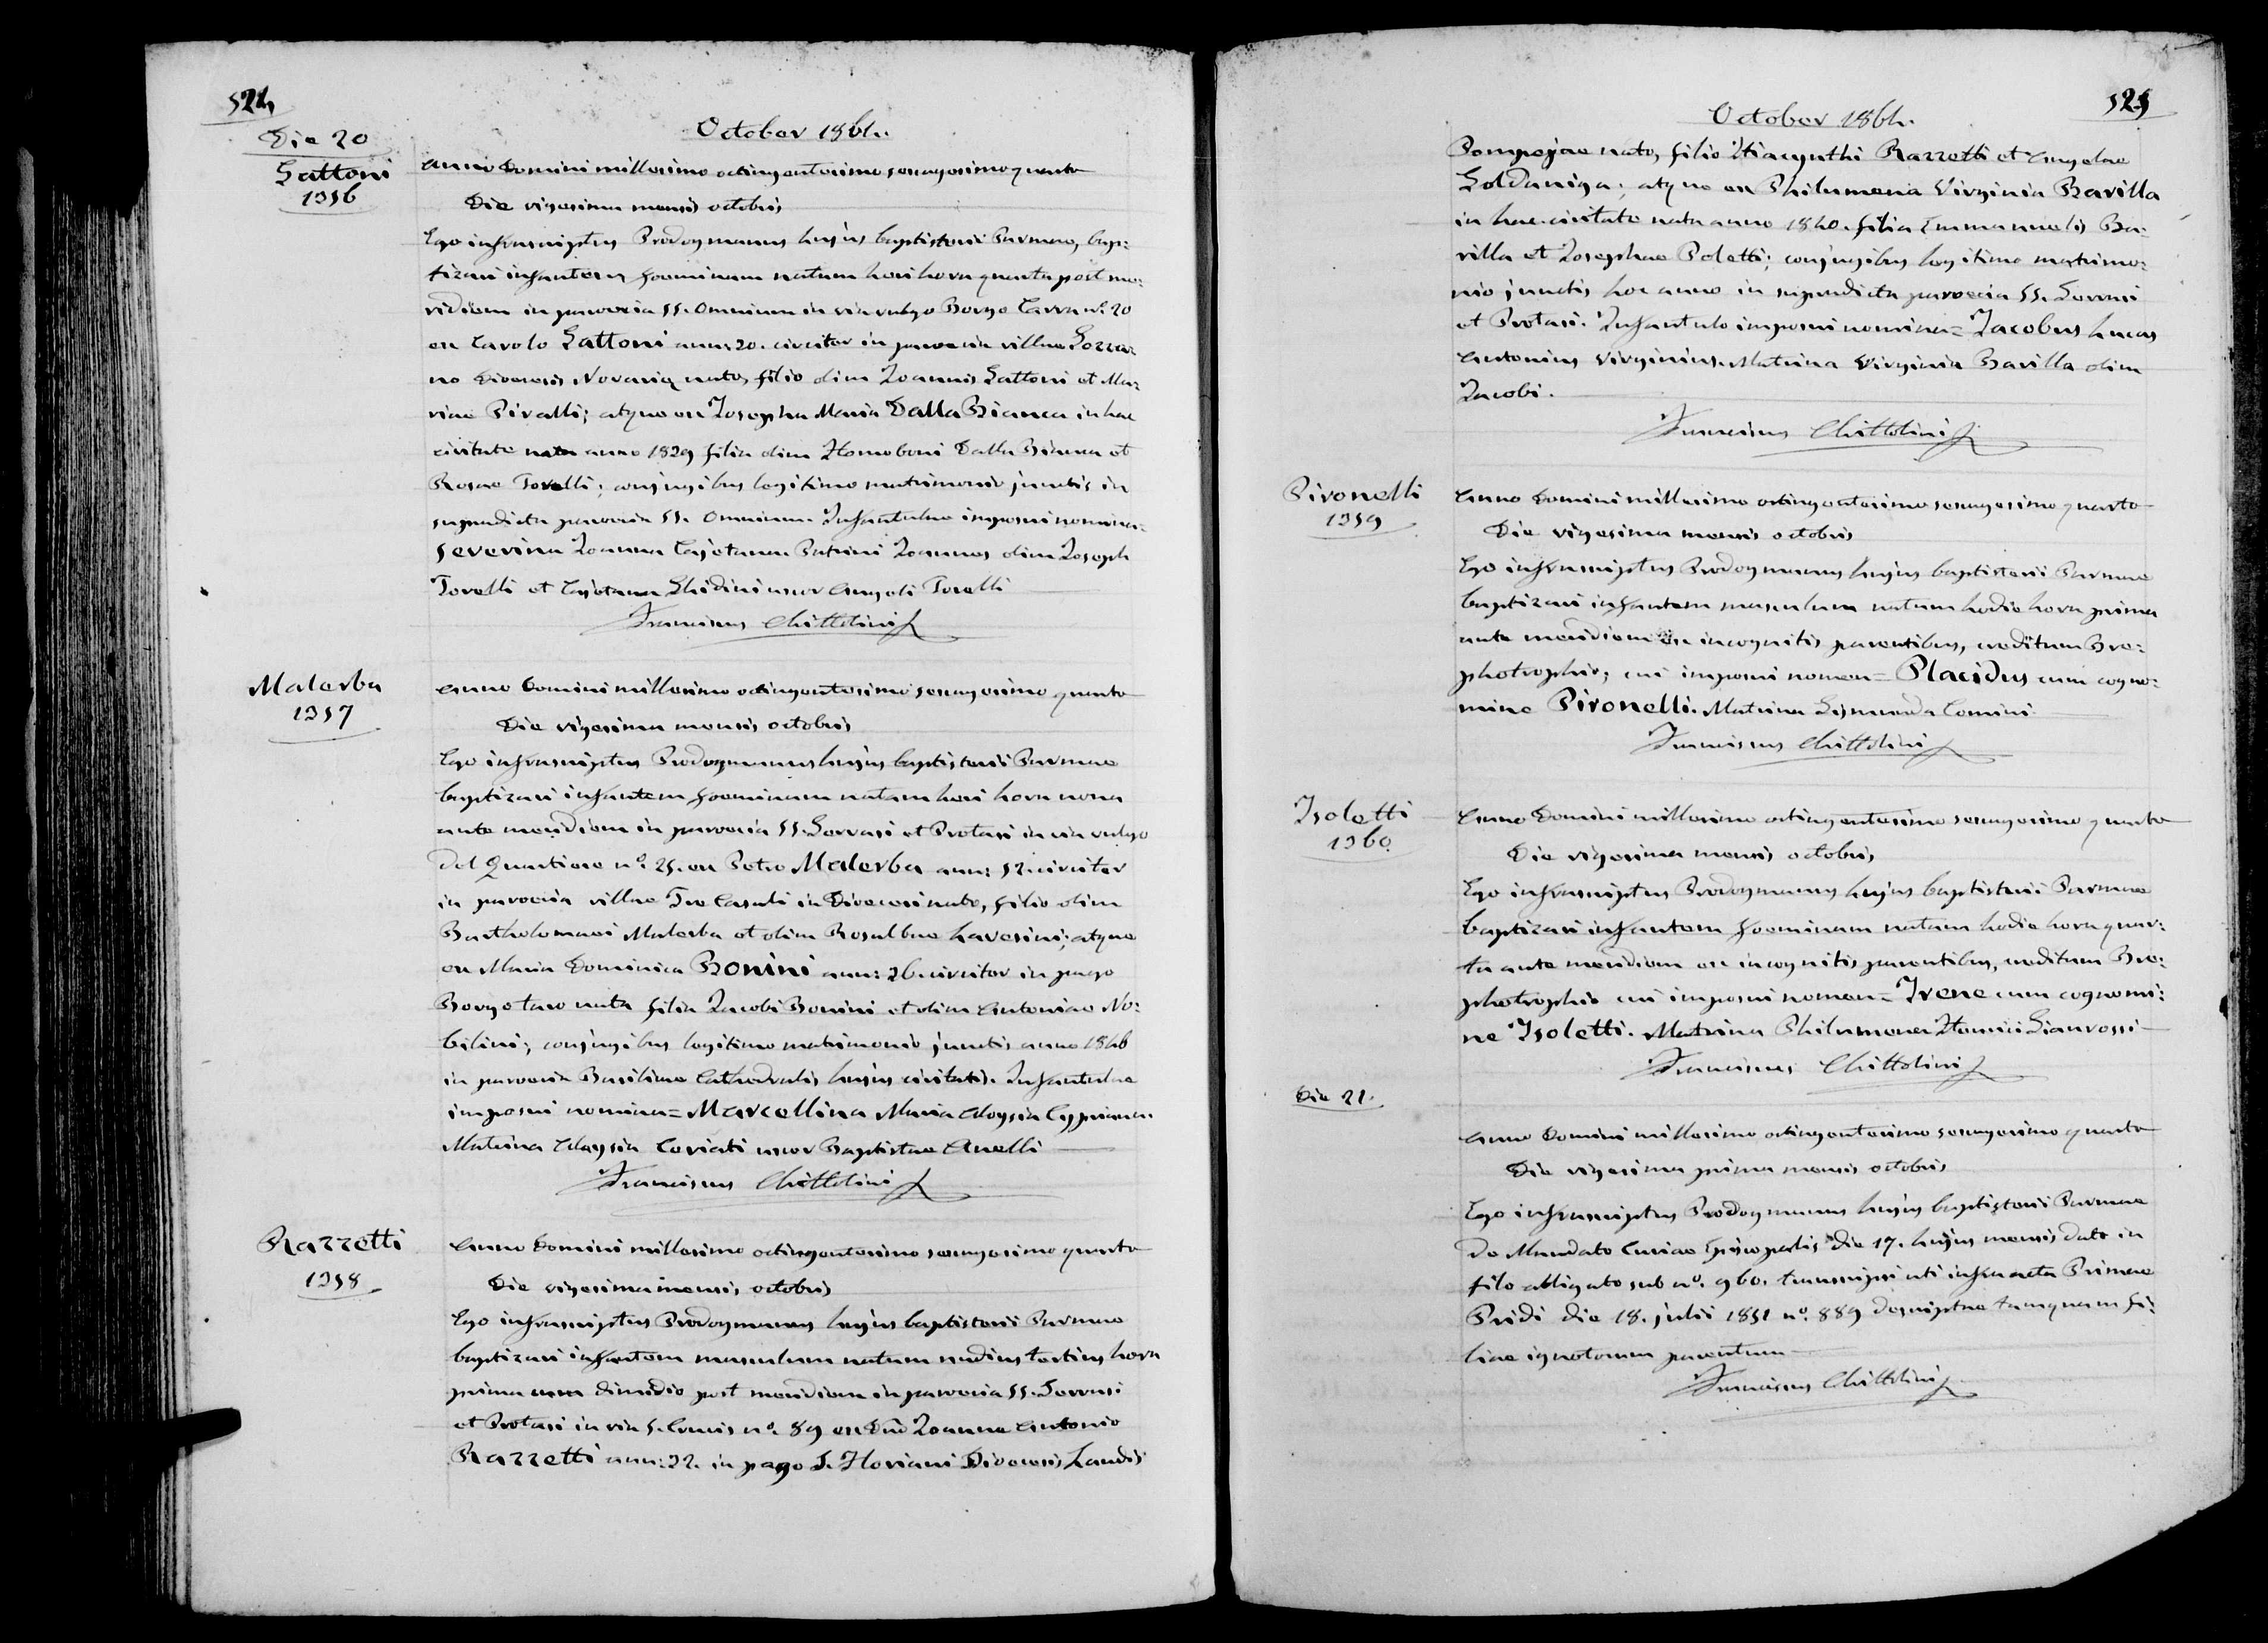 524
Die 20
October 1864.
Gattoni
1356
Anno Domini millesimo octingentesimo sexagesimo quarto
Die vigesima mensis octobris
Ego infrascriptus Prodogmanus hujus baptisterii Parmae, bap:
tizavi infantem foeminam natam heri hora quarta post me:
ridiem in paroecia SS. Omnium in via vulgo Borgo Carra n.º 20
ex Carolo Gattoni ann: 20. circiter in paroecia villae Gozza:
no Diocesis Novariae nato, filio olim Joannis Gattoni et Ma:
riae Piralli; atque ex Josepha Maria Dalla Bianca in hac
civitate nata anno 1829 filia olim Homoboni Dalla Bianca et
Rosae Torelli; conjugibus legitimo matrimonio junctis in
supradicta paroecia SS. Omnium. Infantulae imposui nomina=
Severina Joanna Cajetana Patrini Joannes olim Joseph
Torelli et Cajetana Ghidini uxor Angeli Torelli
Franciscus Chittolini
Malerba
1357
Anno Domini millesimo octingentesimo sexagesimo quarto
Die vigesima mensis octobris
Ego infrascriptus Prodogmanus hujus baptisterii Parmae
baptizavi infantem foeminam natam heri hora nona
ante meridiem in paroecia SS. Gervasi et Protasi in via vulgo
del Quartiere n.º 25. ex Petro Malerba ann: 52. circiter
in paroecia villae Tre Casali in Dioecesi nato, filio olim
Bartholomaei Malerba et olim Rosalbae Lavesini; atque
ex Maria Dominica Bonini ann: 26. circiter in pago
Borgotaro nata filia Jacobi Bonini et olim Antoniae No:
bilini; conjugibus legitimo matrimonio junctis anno 1846
in paroecia Basilicae Cathedralis hujus civitatis. Infantulae
imposui nomina= Marcellina Maria Aloysia Cypriana.
Matrina Aloysia Coriati uxor Baptistae Anelli
Franciscus Chittolini
Razzetti
1358
Anno Domini millesimo octingentesimo sexagesimo quarto
Die vigesima mensis octobris
Ego infrascriptus Prodogmanus hujus baptisterii Parmae
baptizavi infantem masculum natum nudius tertius hora
prima cum dimidio post meridiem in paroecia SS. Gervasi
et Protasi in via S. Crucis n.º 89 ex Dno Joanne Antonio
Razzetti ann: 32. in pago S. Floriani Dioecesis Laudis
525
October 1864.
Pompejae nato, filio Hiacynthi Razzetti et Angelae
Goldaniga; atque ex Philumena Virginia Barilla
in hac civitate nata anno 1840. filia Emmanuelis Ba:
rilla et Josephae Poletti; conjugibus legitimo matrimo:
nio junctis hoc anno in supradicta paroecia SS. Gervasi
et Protasi. Infantulo imposui nomina= Jacobus Lucas
Antonius Virginius. Matrina Virginia Barilla olim
Jacobi.
Franciscus Chittolini
Pironelli
1359
Anno Domini millesimo octingentesimo sexagesimo quarto
Die vigesima mensis octobris
Ego infrascriptus Prodogmanus hujus baptisterii Parmae
baptizavi infantem masculum natum hodie hora prima
ante meridiem ex incognitis parentibus, creditum Bre:
photrophio; cui imposui nomen= Placidus cum cogno:
mine Pironelli. Matrina Gismunda Comini
Franciscus Chittolini
Isoletti
1360
Anno Domini millesimo octingentesimo sexagesimo quarto
Die vigesima mensis octobris
Ego infrascriptus Prodogmanus hujus baptisterii Parmae
baptizavi infantem foeminam natam hodie hora quar:
ta ante meridiem ex incognitis parentibus, creditam Bre:
photrophio cui imposui nomen= Irene cum cognomi:
ne Isoletti. Matrina Philumena Gianrossi
Franciscus Chittolini
Die 21.
Anno Domini millesimo octingentesimo sexagesimo quarto
Die vigesima prima mensis octobris
Ego infrascriptus Prodogmanus hujus baptisterii Parmae
De Mandato Curiae Episcopalis Die 17. hujus mensis dato in
filo alligato sub n.º 960. transcripsi uti infra acta Primae
Pridi die 18. julii 1851 n.º 889 descriptae tamquam fi:
liae ignotorum parentum
Franciscus Chittolini